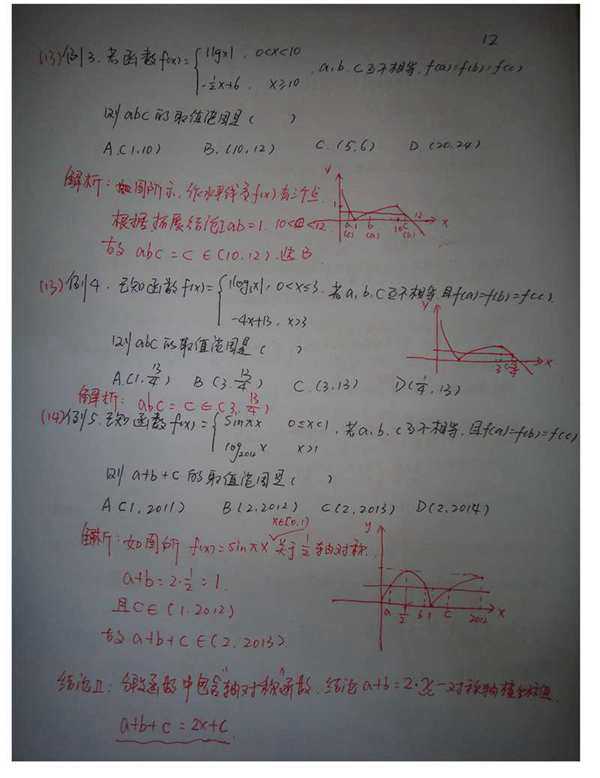 12
(13)例3.若函数f(x)={|lgx|, 0<x<10
-½x+6, x≥10
,a,b,c互不相等,f(a)=f(b)=f(c)
则abc的取值范围是( )
A.(1,10) B.(10,12) C.(5,6) D.(20,24)
解析:如图所示,作水平线交f(x)有三个点
根据拓展结论I ab=1. 10<c<12
故 abc=c∈(10,12).选B
y
1
a
(b)
1
b
(a)
10
c
12
x
(13)例4.已知函数f(x)={|log₃x|, 0<x≤3
-4x+13, x>3
.若a,b,c互不相等,且f(a)=f(b)=f(c).
则abc的取值范围是( )
A.(1,13/4) B(3,13/4) C.(3,13) D(1/4,13)
解析: abc=c∈(3,13/4)
y
3
13/4
x
(14)例5.已知函数f(x)={sinπx 0≤x≤1
log₂₀₁₂x x>1
,若a,b,c互不相等,且f(a)=f(b)=f(c)
则a+b+c的取值范围是( )
A(1,2011) B(2,2012) C(2,2013) D(2,2014)
x∈[0,1)
解析:如图所 f(x)=sinπx 关于½轴对称.
a+b=2·½=1.
且c∈(1,2012)
故a+b+c∈(2,2013)
y
a
½
b
1
c
2012
x
结论Ⅱ:分段函数中包含"轴对称"函数.结论a+b=2·x—对称轴横坐标
a+b+c=2x+c